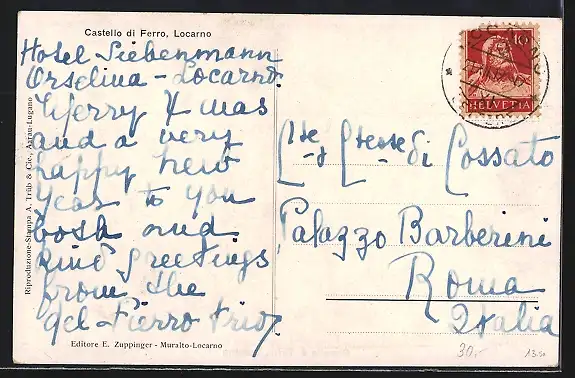 Castello di Ferro, Locarno
Hotel Siebenmann
Orselina - Locarno.
Merry Xmas
and a very
happy new
Year to you
both and
kind greetings
from the
del Fierro trio.
Cte y Ctesse di Cossato
Palazzo Barberini
Roma
Italia
10
HELVETIA
LOCARNO
Riproduzione-Stampa A. Trüb & Cie., Aarau-Lugano
Editore E. Zuppinger - Muralto-Locarno
30.-
13.50